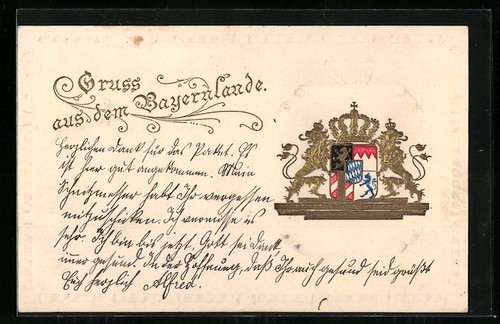 Gruss
aus dem Bayernlande.
Herzlichen Dank für das Paket. Es
ist hier gut angekommen. Mein
habt Ihr vergessen
mitzuschicken. Ich vermisse es
sehr. Ich bin bis jetzt, Gott sei Dank
immer gesund. In der Hoffnung, daß Ihr auch gesund seid grüßt
Euch herzlich Alfred.